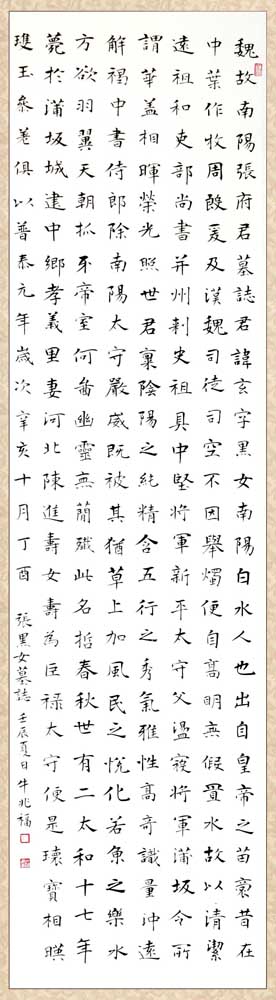 魏故南陽張府君墓誌君諱玄字黑女南陽白水人也出自皇帝之苗裔昔在
中葉作牧周殷爰及漢魏司徒司空不因舉燭便自高明無假置水故以清潔
遠祖和吏部尚書并州刺史祖具中堅將軍新平太守父盪寇將軍蒲坂令所
謂華蓋相暉榮光照世君稟陰陽之純精含五行之秀氣雅性高奇識量沖遠
解褐中書侍郎除南陽太守嚴威既被其猶草上加風民之悅化若魚之樂水
方欲羽翼天朝抓牙帝室何啚幽靈無簡殲此名哲春秋世有二太和十七年
薨於蒲坂城建中鄉孝義里妻河北陳進壽女壽為巨祿太守便是瓌寶相暎
瓊玉參差俱以普泰元年歲次辛亥十月丁酉
張黑女墓誌 壬辰夏日 牛兆福